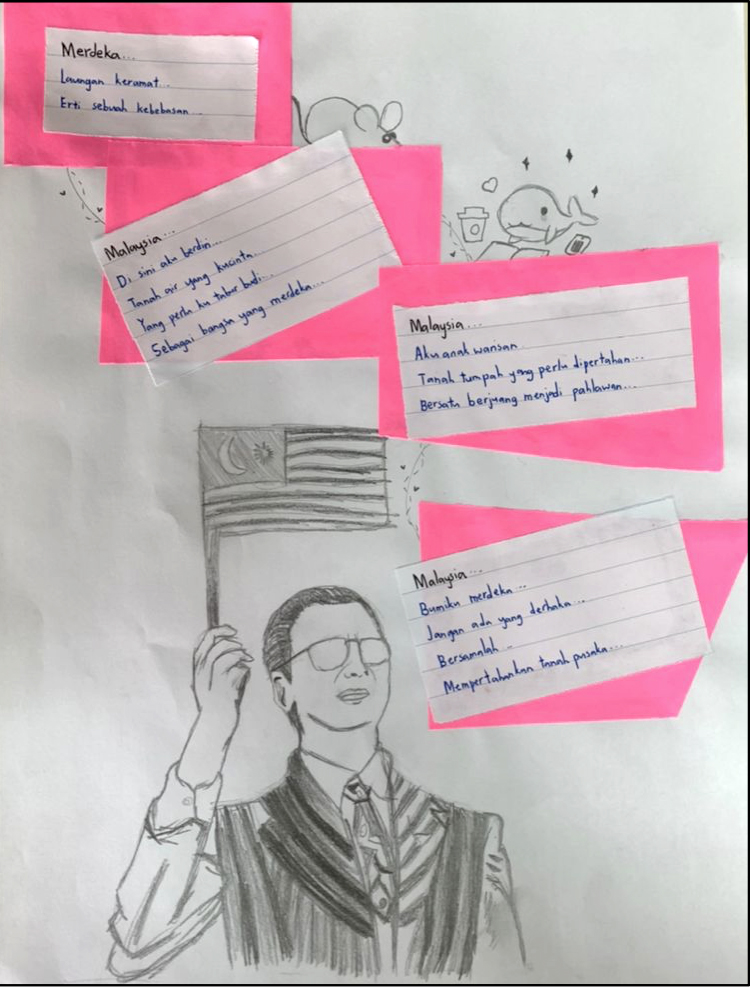 Merdeka...
Laungan keramat...
Erti sebuah kebebasan...
Malaysia...
Di sini aku berdiri...
Tanah air yang kucinta...
Yang perlu ku tabur budi...
Sebagai bangsa yang merdeka...
Malaysia...
Aku anak warisan
Tanah tumpah yang perlu dipertahan...
Bersatu berjuang menjadi pahlawan...
Malaysia...
Bumiku merdeka...
Jangan ada yang derhaka...
Bersamalah..
Mempertahankan tanah pusaka...